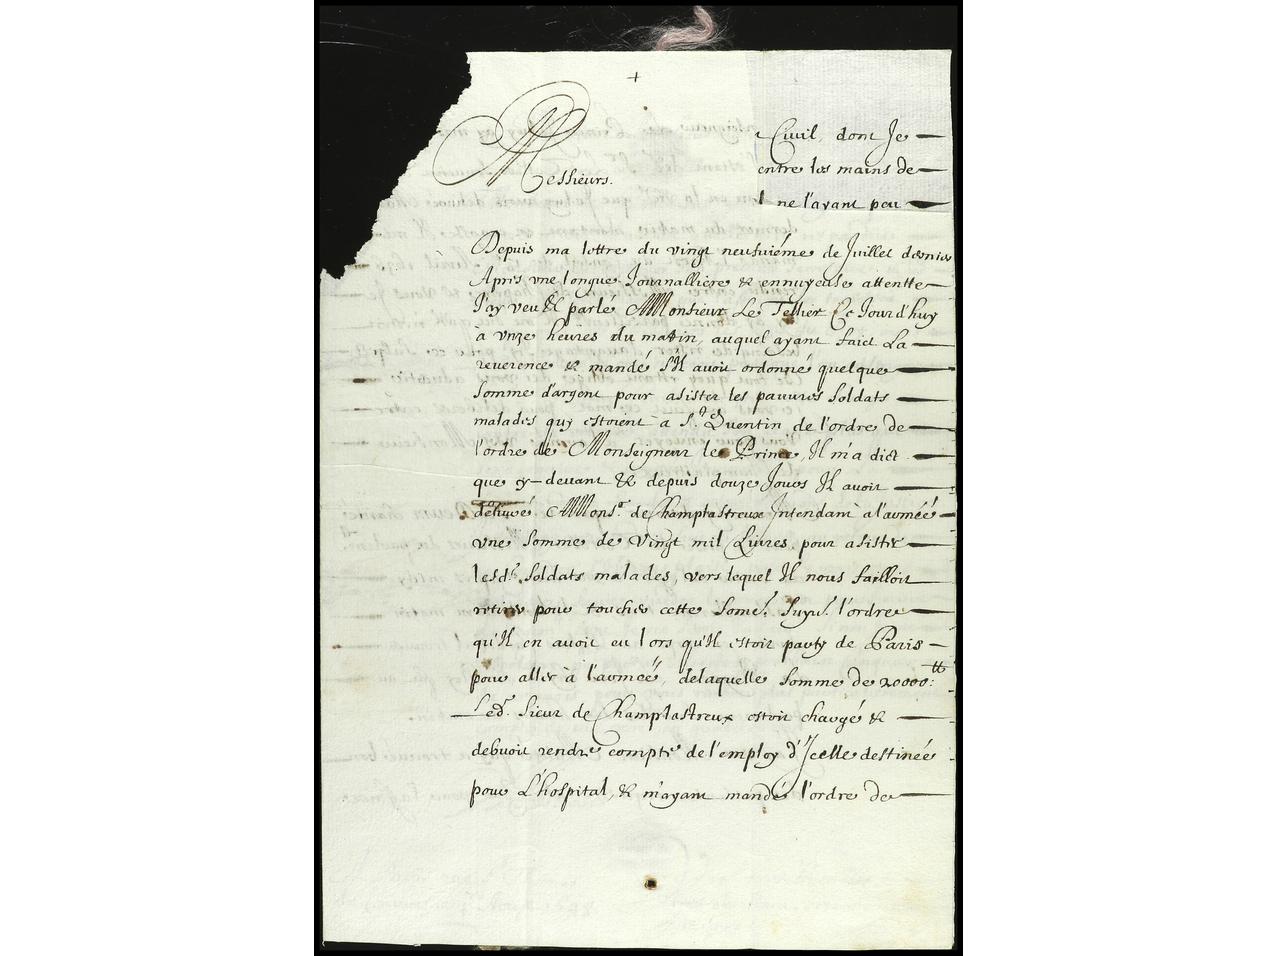 +
Civil, dont Je
entre les mains de
Messieurs.
ne l'ayant peu
Depuis ma lettre du vingt neufuiéme de Juillet dernier
Apris vne longue Journalliere & ennuyeuse attentte
J'ay veu & parlé A Monsieur Le Tellier Ce Jourd'huy
à vnze heures du matin, auquel ayant faict La
reverence & mandé s'Il avoit ordonné quelque
somme d'argent pour asister les pauures soldats
malades quy estoient à St. Quentin de l'ordre de
l'ordre de Monseigneur le Prince, Il m'a dict
que cy-devant & depuis douze Jours Il avoit
deliuré A Monsr. de Champlastreux Intendant a l'armeé
vne somme de Vingt mil Liures pour asister
lesdt. soldats malades, vers lequel Il nous failloit
retirer pour toucher cette some. suyt. l'ordre
qu'Il en avoit eu lors qu'Il estoit party de Paris
pour aller à l'armeé, delaquelle somme de 20000tt:
Ledt. Sieur de Champlastreux estoit chargé &
debuoit rendre compte de l'employ d'Jcelle destinée
pour L'hospital, & m'ayant mandé l'ordre de